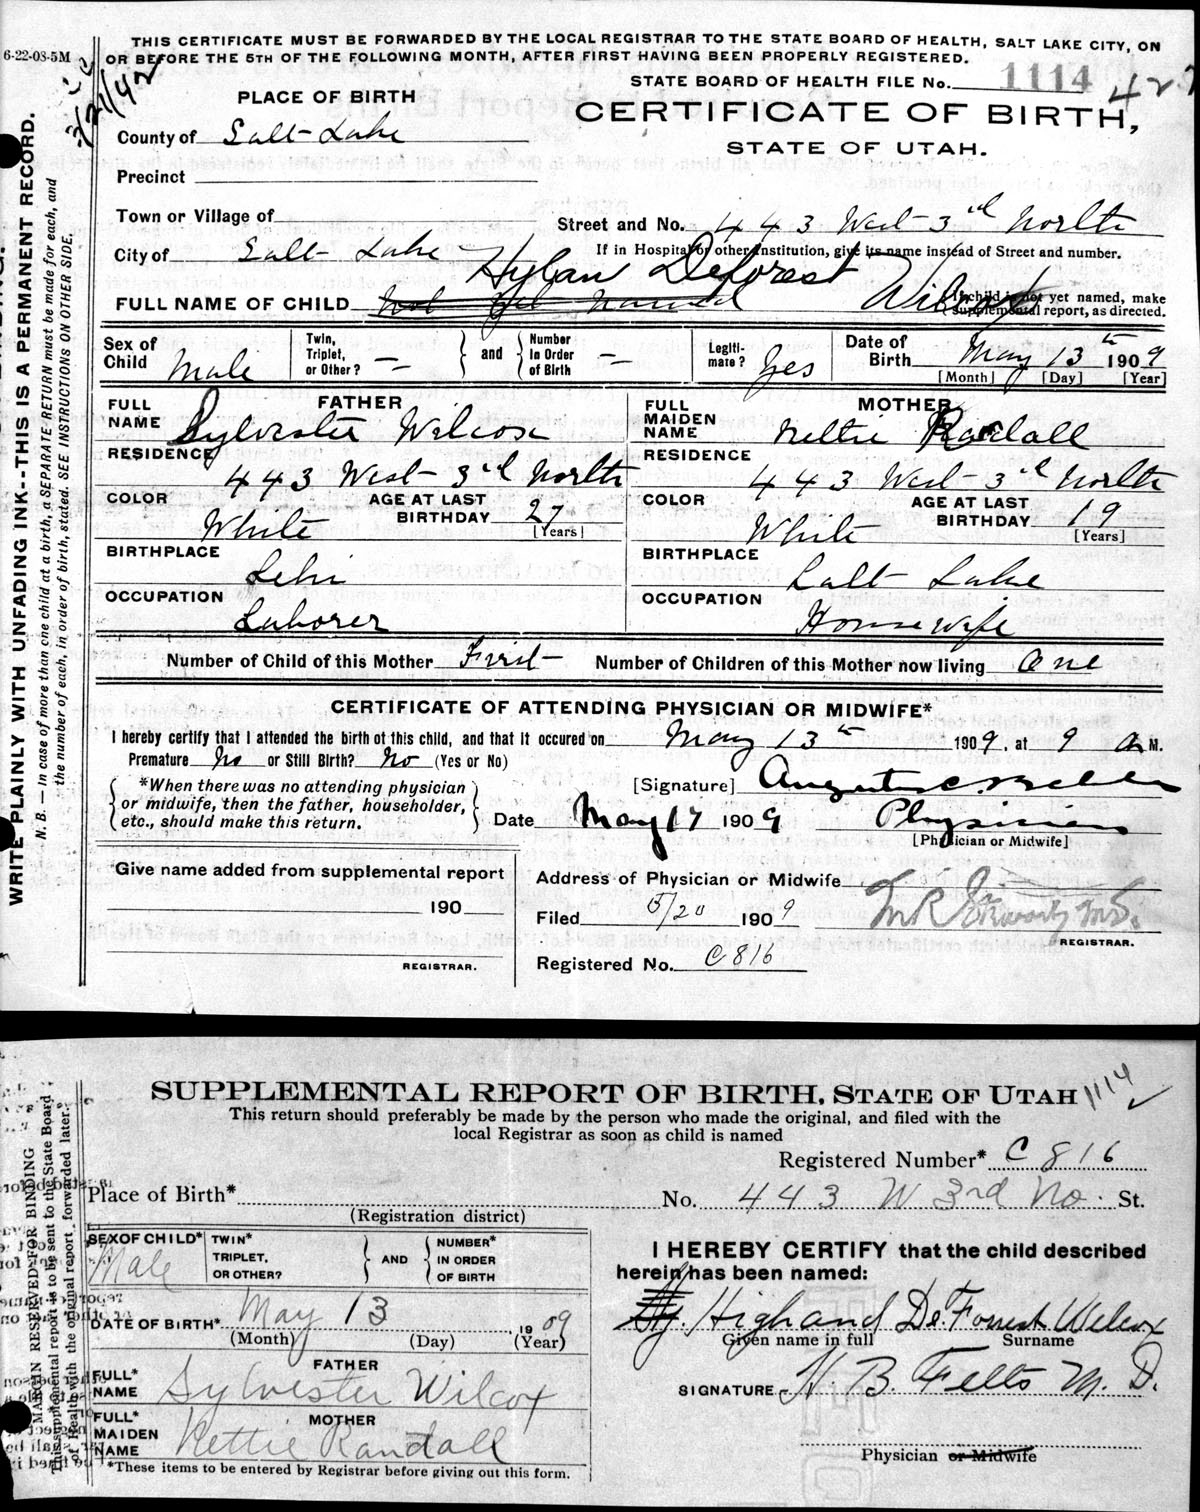 6-22-08-5M
THIS CERTIFICATE MUST BE FORWARDED BY THE LOCAL REGISTRAR TO THE STATE BOARD OF HEALTH, SALT LAKE CITY, ON
OR BEFORE THE 5TH OF THE FOLLOWING MONTH, AFTER FIRST HAVING BEEN PROPERLY REGISTERED.
STATE BOARD OF HEALTH FILE No. 1114
PLACE OF BIRTH
CERTIFICATE OF BIRTH,
STATE OF UTAH.
County of Salt Lake
Precinct
Town or Village of
Street and No. 443 West 3rd North
If in Hospital or other Institution, give its name instead of Street and number.
City of Salt Lake
Hylan Deforest Wilcox
FULL NAME OF CHILD Not Yet Named
If child is not yet named, make
supplemental report, as directed.
Sex of Child Male
Twin, Triplet, or Other? —
and
Number in Order of Birth —
Legiti-mate? Yes
Date of Birth May 13th 1909
[Month] [Day] [Year]
FATHER
FULL NAME Sylvester Wilcox
RESIDENCE 443 West 3rd North
COLOR White
AGE AT LAST BIRTHDAY 27
[Years]
BIRTHPLACE Lehi
OCCUPATION Laborer
MOTHER
FULL MAIDEN NAME Nettie Randall
RESIDENCE 443 West 3rd North
COLOR White
AGE AT LAST BIRTHDAY 19
[Years]
BIRTHPLACE Salt Lake
OCCUPATION Housewife
Number of Child of this Mother First
Number of Children of this Mother now living One
CERTIFICATE OF ATTENDING PHYSICIAN OR MIDWIFE*
I hereby certify that I attended the birth of this child, and that it occured on May 13th 1909, at 9 A M.
Premature No or Still Birth? No (Yes or No)
*When there was no attending physician
or midwife, then the father, householder,
etc., should make this return.
[Signature]
Date May 17 1909
Physician
[Physician or Midwife]
Give name added from supplemental report
190
REGISTRAR.
Address of Physician or Midwife
Filed 5/20 1909
REGISTRAR.
Registered No. C 816
WRITE PLAINLY WITH UNFADING INK--THIS IS A PERMANENT RECORD.
N. B. — In case of more than one child at a birth, a SEPARATE RETURN must be made for each, and
the number of each, in order of birth, stated. SEE INSTRUCTIONS ON OTHER SIDE.
SUPPLEMENTAL REPORT OF BIRTH, STATE OF UTAH
1114
This return should preferably be made by the person who made the original, and filed with the
local Registrar as soon as child is named
Registered Number* C 816
Place of Birth*
No. 443 W 3rd No. St.
(Registration district)
SEX OF CHILD* Male
TWIN* TRIPLET, OR OTHER?
AND
NUMBER* IN ORDER OF BIRTH
DATE OF BIRTH* May 13 1909
(Month) (Day) (Year)
FATHER
FULL* NAME Sylvester Wilcox
MOTHER
FULL* MAIDEN NAME Nettie Randall
*These items to be entered by Registrar before giving out this form.
I HEREBY CERTIFY that the child described
herein has been named:
Highand De Forrest Wilcox
Given name in full Surname
SIGNATURE H. B. Felts M. D.
Physician or Midwife
MARGIN RESERVED FOR BINDING
This supplemental report to be sent to the State Board
of Health with the original report forwarded later.